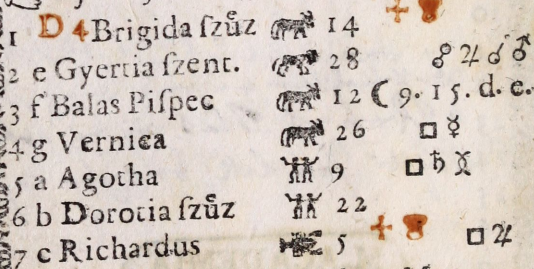 1 D 4 Brigida ſzuͤz 14
2 e Gyertia ſzent. 28 ☍ ♃ ☌ ♂
3 f Balas Piſpec 12 ☾ 9. 15. d. e.
4 g Vernica 26 □ ☿
5 a Agotha 9 □ ♄
6 b Dorotia ſzuͤz 22
7 c Richardus 5 □ ♃